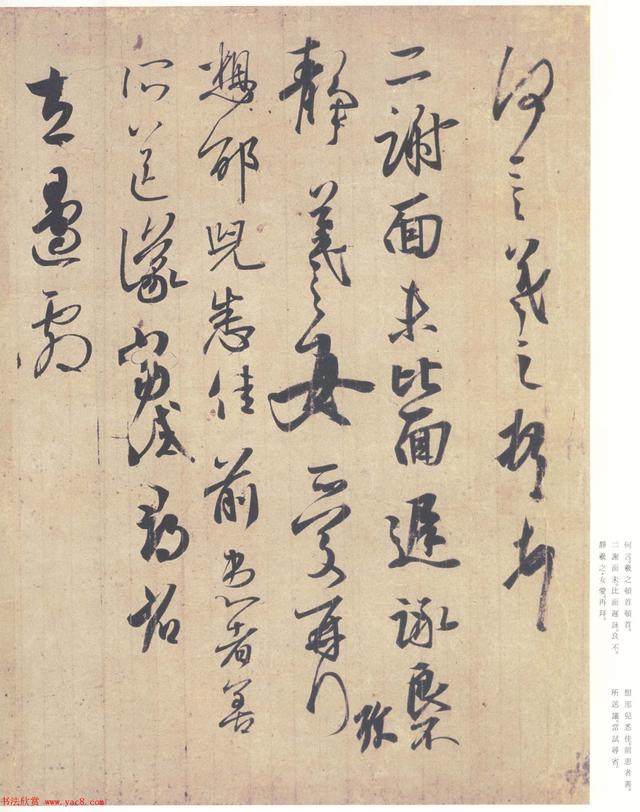 何言羲之頓首頓首
二謝面未比面遲詠良不
靜羲之女愛再拜
想邵兒悉佳前患者善
所送議當試尋省
左邊劇
何言。羲之頓首頓首。
二謝面未比面遲詠良不
靜。羲之女愛再拜。
想邵兒悉佳。前患者善。
所送議當試尋省。
书法欣赏 www.yac8.com